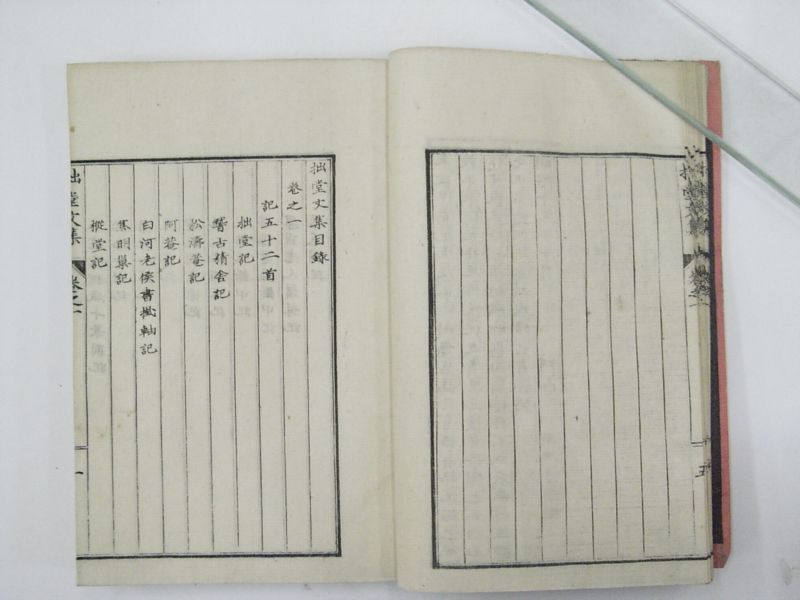 拙堂文集目錄
卷之一
記五十二首
拙堂記
稽古精舍記
松濤菴記
阿菴記
白河老侯書掛軸記
明巢記
樅堂記
拙堂文集
卷之一
一
五